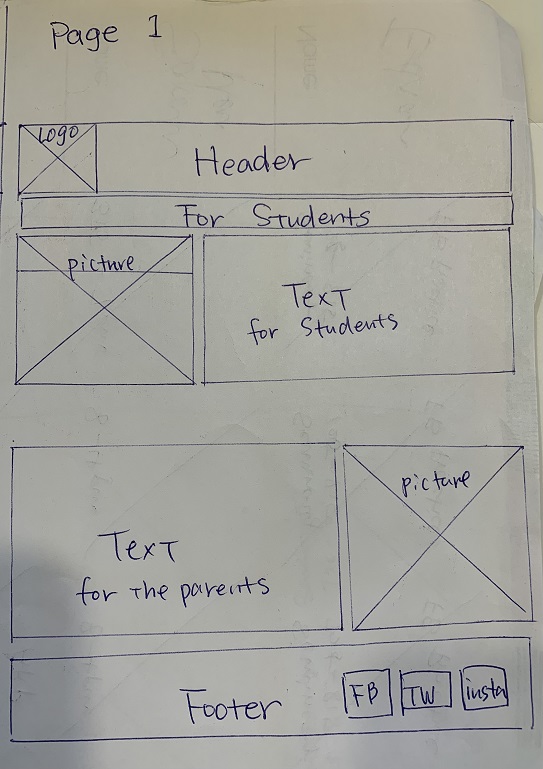 Page 1
Logo
Header
For Students
picture
Text
for Students
picture
Text
for the parents
Footer
FB
TW
insta